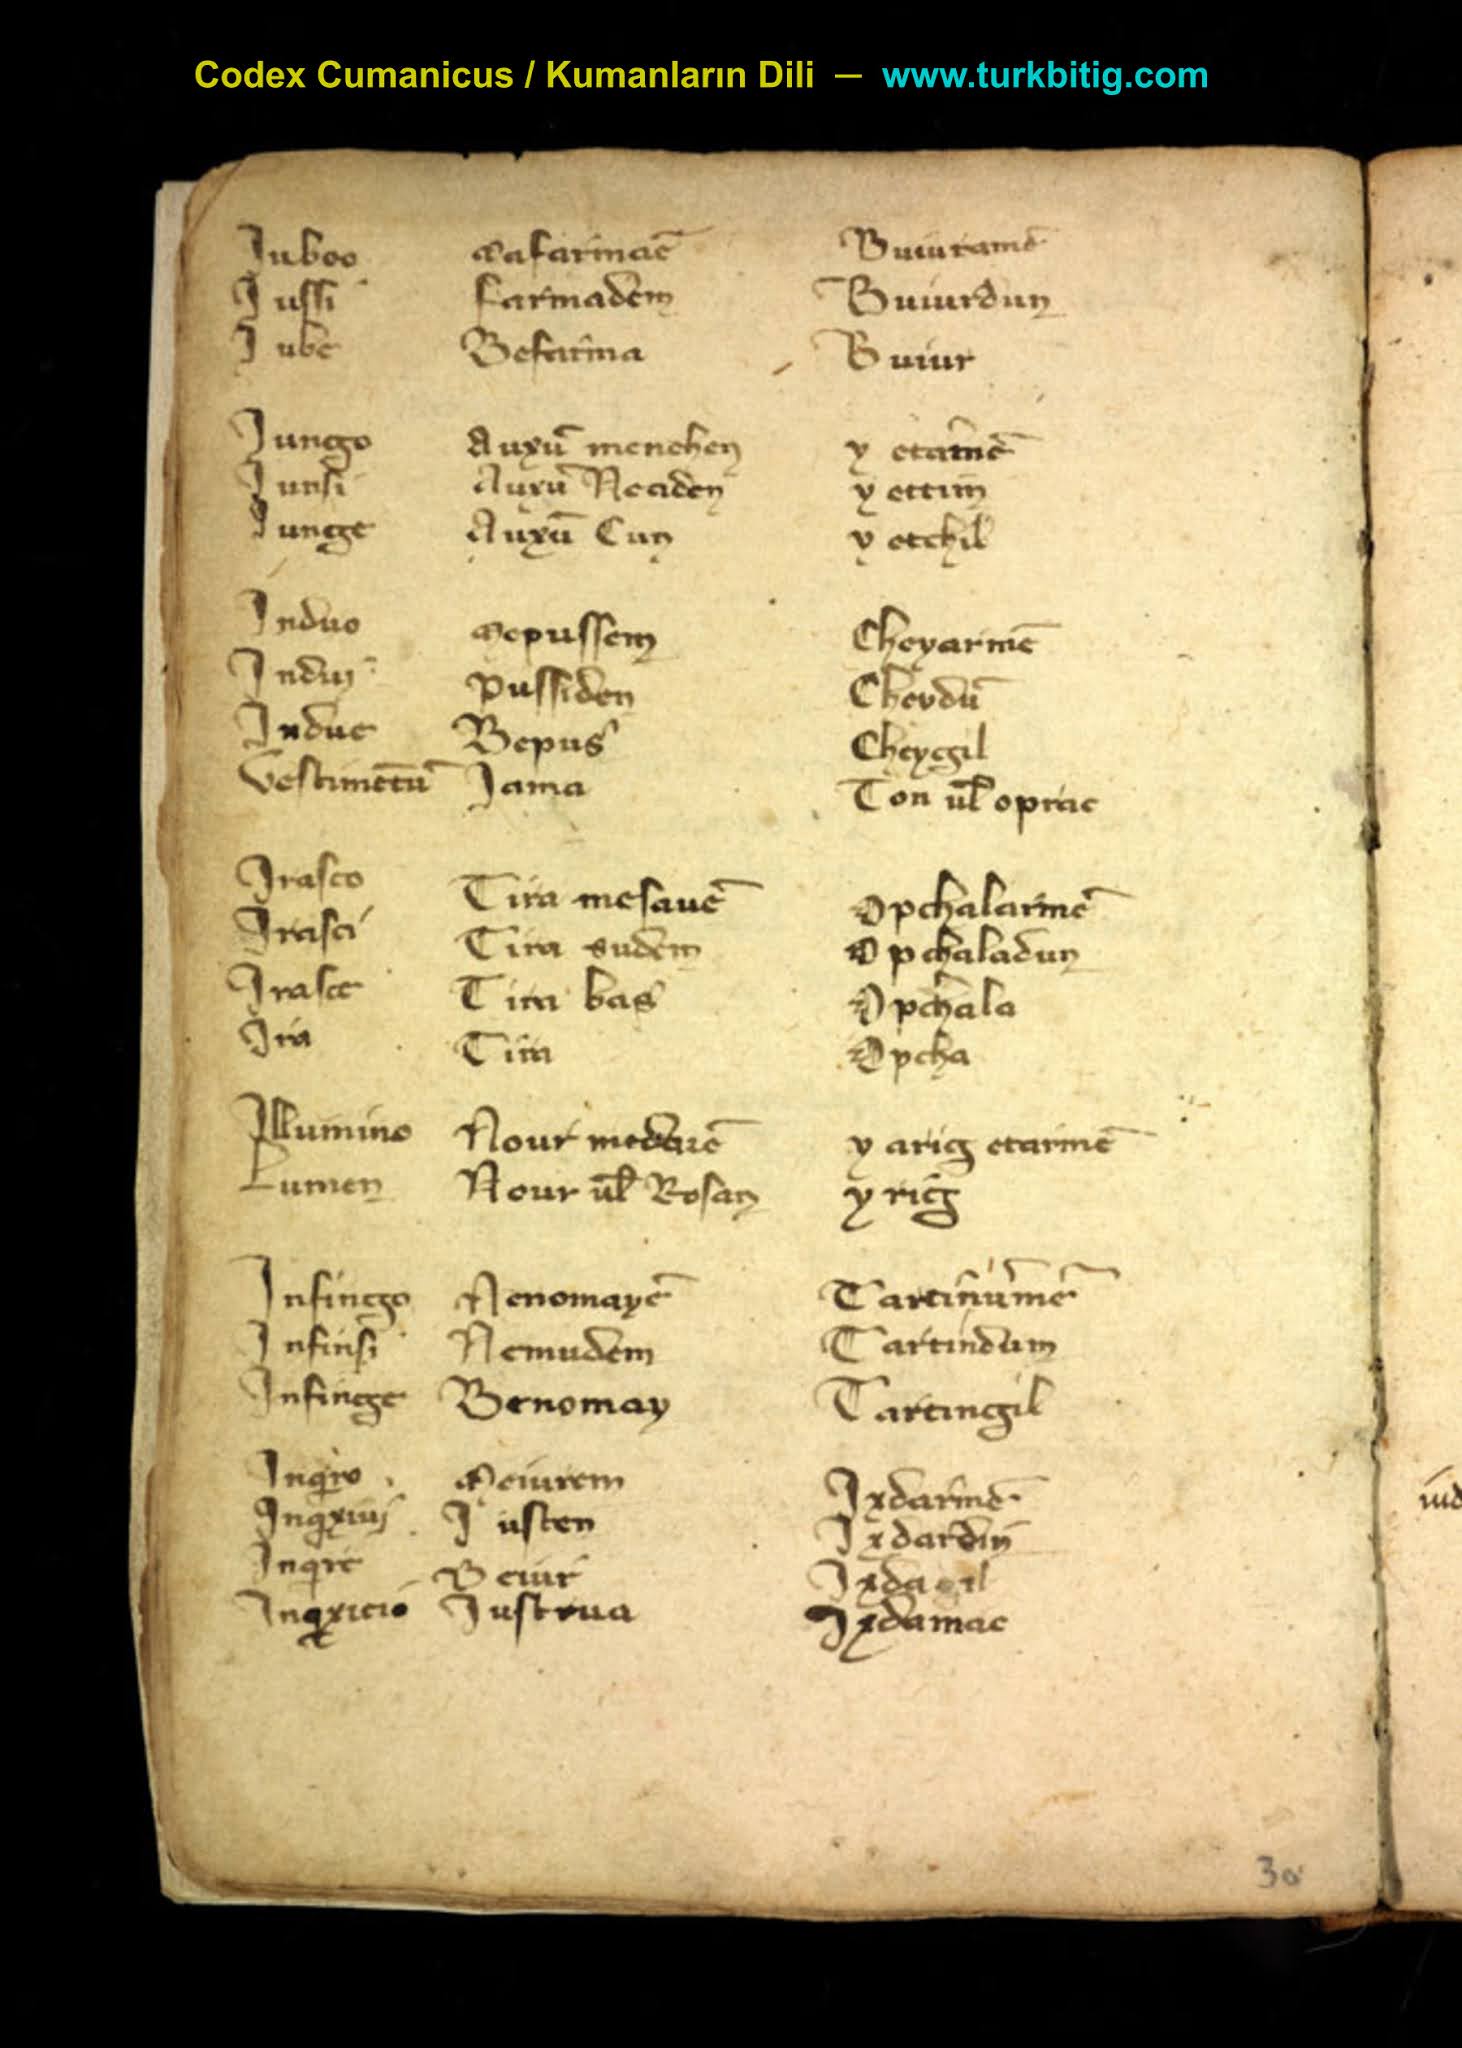 Codex Cumanicus / Kumanların Dili — www.turkbitig.com
Iuboo Mafarmaē Buiuramē
Iussi farmadem Buiurdum
Iube Befarma Buiur
Iungo Auxū menehen y etarmē
Iunsi Auxū Reciden y ettim
Iunge Auxū Cun y etchil
Induo Mepussem Cheyarmē
Indui pussiden Cheydū
Indue Bepus Cheygil
Vestimētū Jama Ton ul oprac
Irasco Tira mesauē Opchalarmē
Irasci Tira sudem Opchaladum
Irasce Tira bas Opchala
Ira Tira Opcha
Illumino Nour y arig etarmē
Lumen Nour ul Rosan y rig
Infingo Nenomayē Tartinurmē
Infinsi Nemudem Tartindum
Infinge Benomay Tartingil
Inqiro Meiurem Ixdarmē
Inqxiui Iusten Ixdardim
Inqire Beiur Ixdagil
Inqxicio Iustrua Ixdamac
30